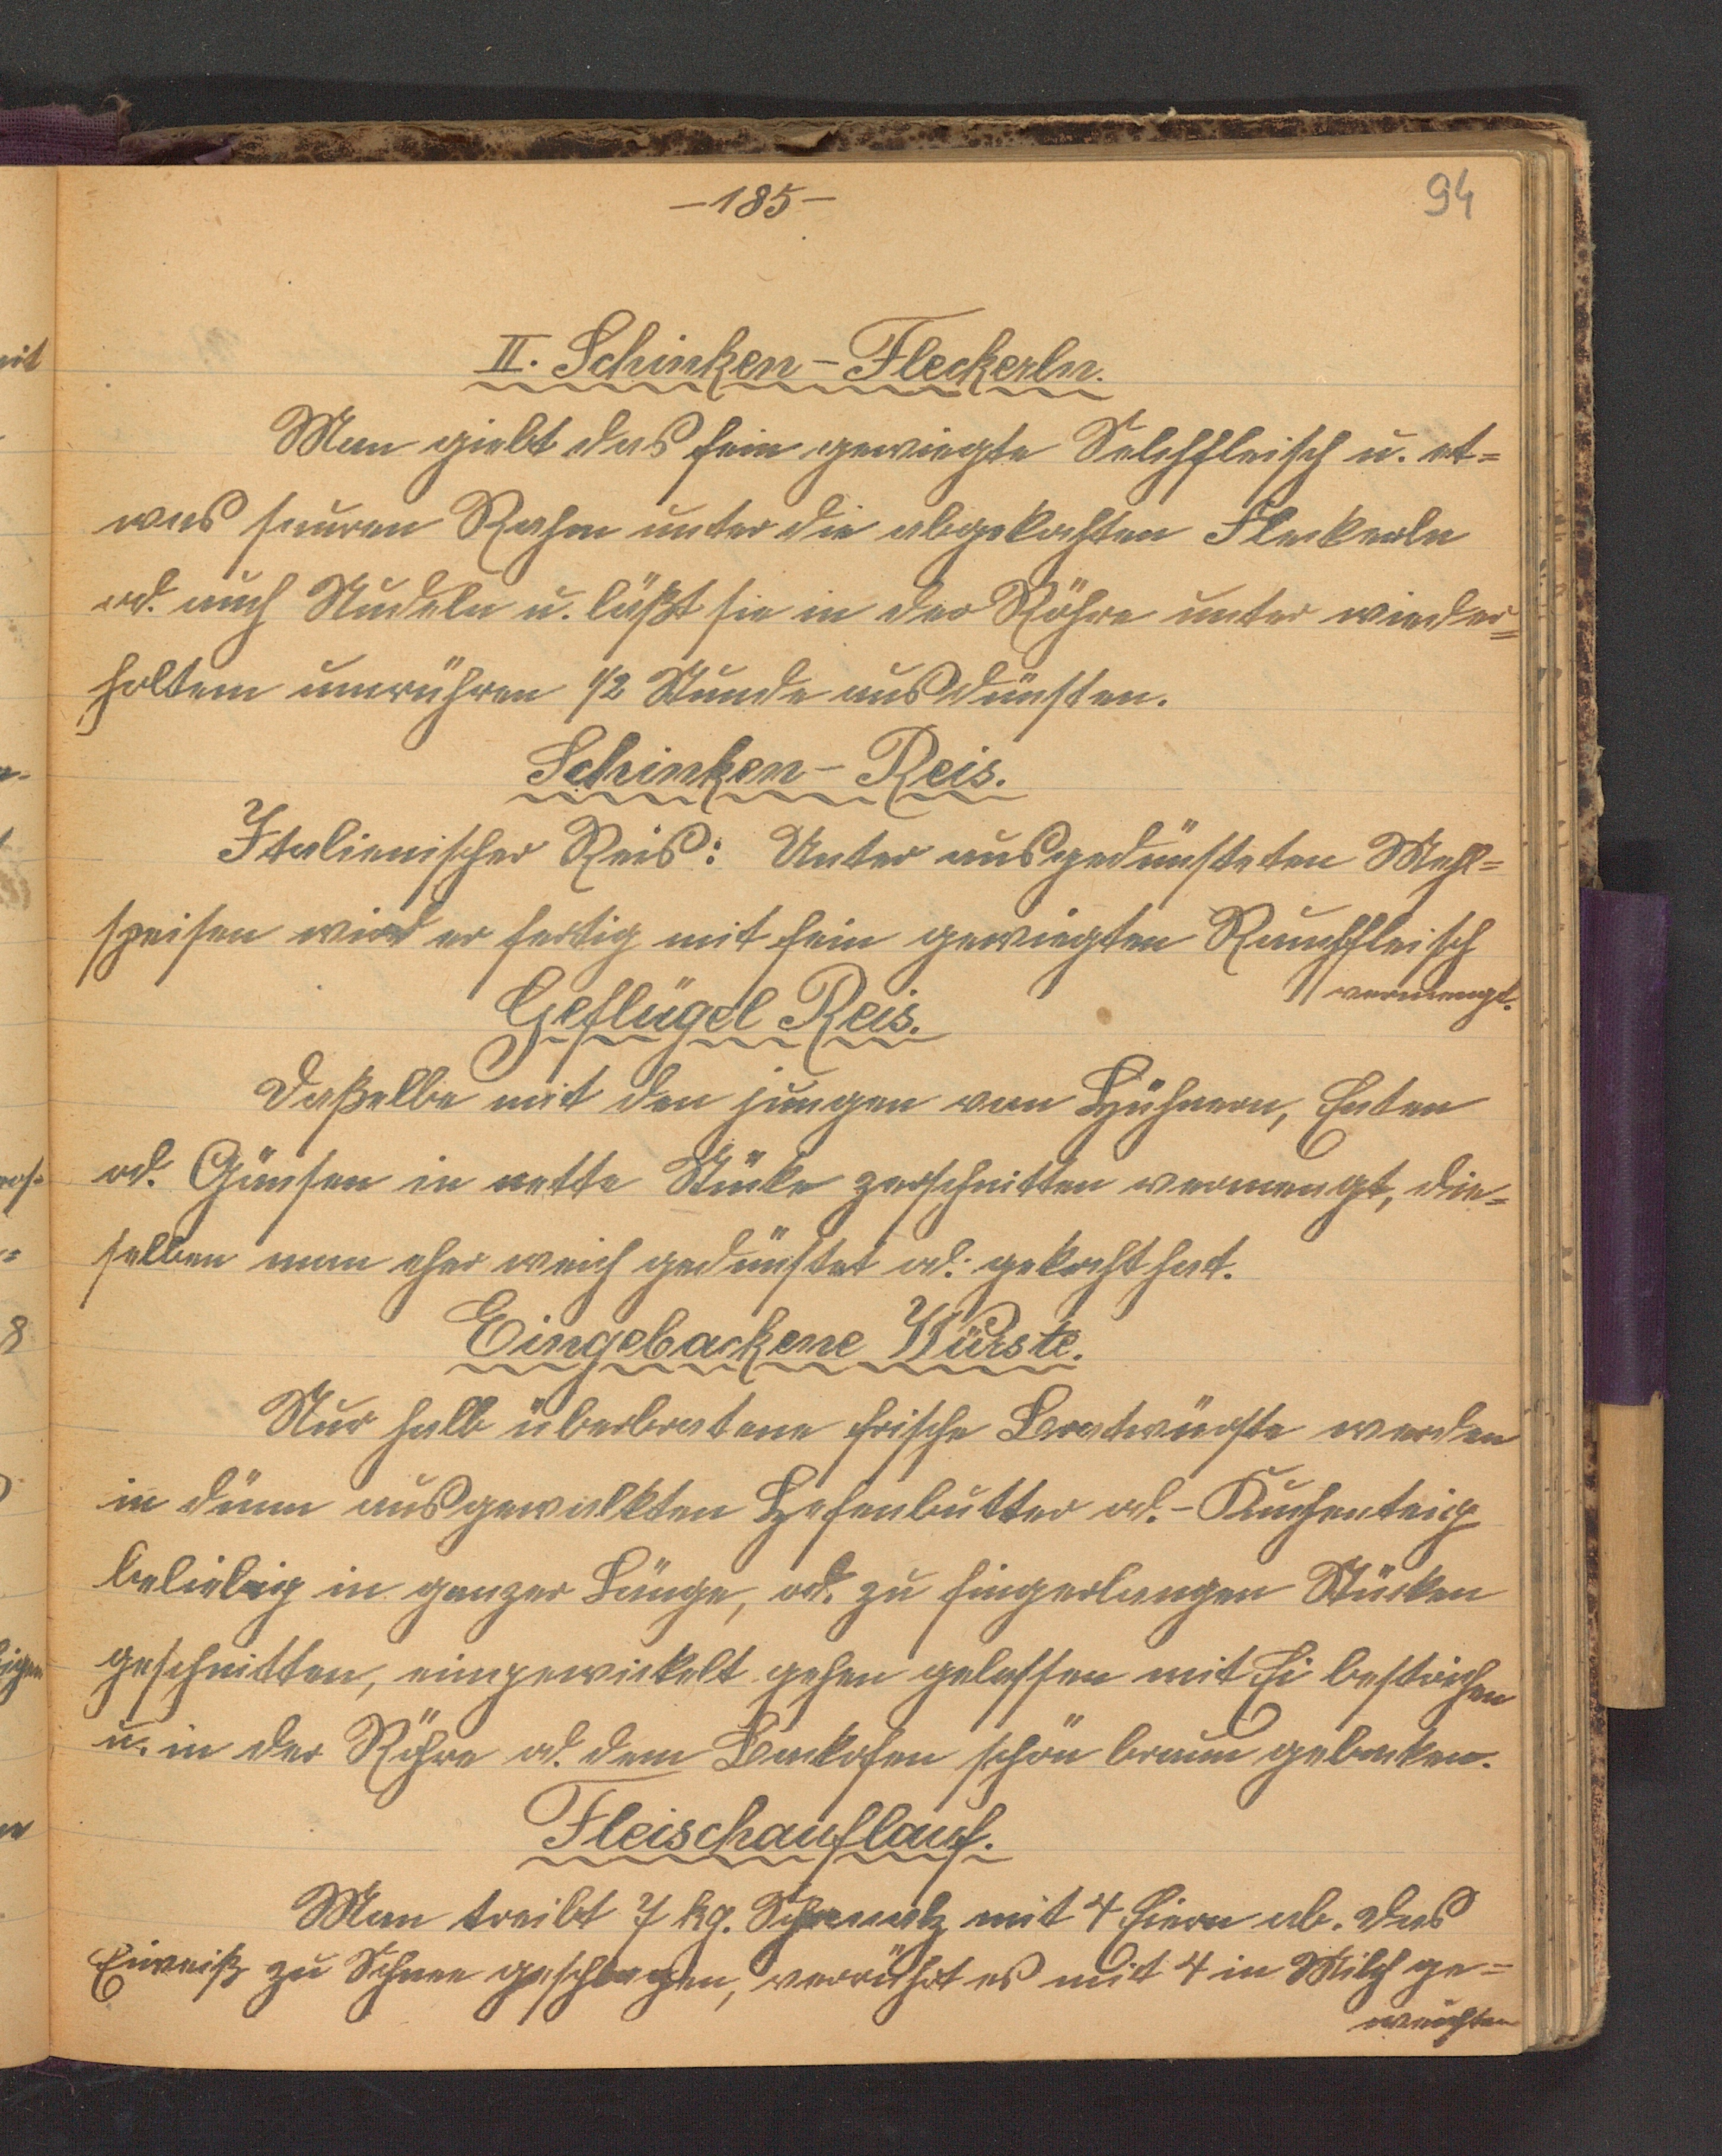 -185-
94
II. Schinken-Fleckerln.
Man giebt das fein gewiegte Selchfleisch u. et=
was sauren Rahm unter die abgekochten Fleckerln
od. auch Nudeln u. läßt sie in der Röhre unter wieder=
holtem umrühren 1/2 Stunde ausdünsten.
Schinken-Reis.
Italienischer Reis: Unter ausgedünsteten Mehl=
speisen wird er fertig mit fein gewiegten Rauchfleisch
vermengt.
Geflügel Reis.
Daßelbe mit den jungen von Hühnern, Enten
od. Gänsen in nette Stücke zerschnitten vermengt, die=
selben man eher weich gedünstet od. gekocht hat.
Eingebackene Würste.
Nur halb überbratene frische Bratwürste werden
in dünn ausgewalkten Hefenbutter od.- Kuchenteig
beliebig in ganzer Länge, od. zu fingerlangen Stücken
geschnitten, eingewickelt gehen gelassen mit Ei bestrichen
u. in der Röhre od. dem Backofen schön braun gebacken.
Fleischauflauf.
Man treibt 7 kg. Schmalz mit 4 Eiern ab. Das
Eiweiß zu Schnee geschlagen, verrührt es mit 4 in Milch ge=
weichten